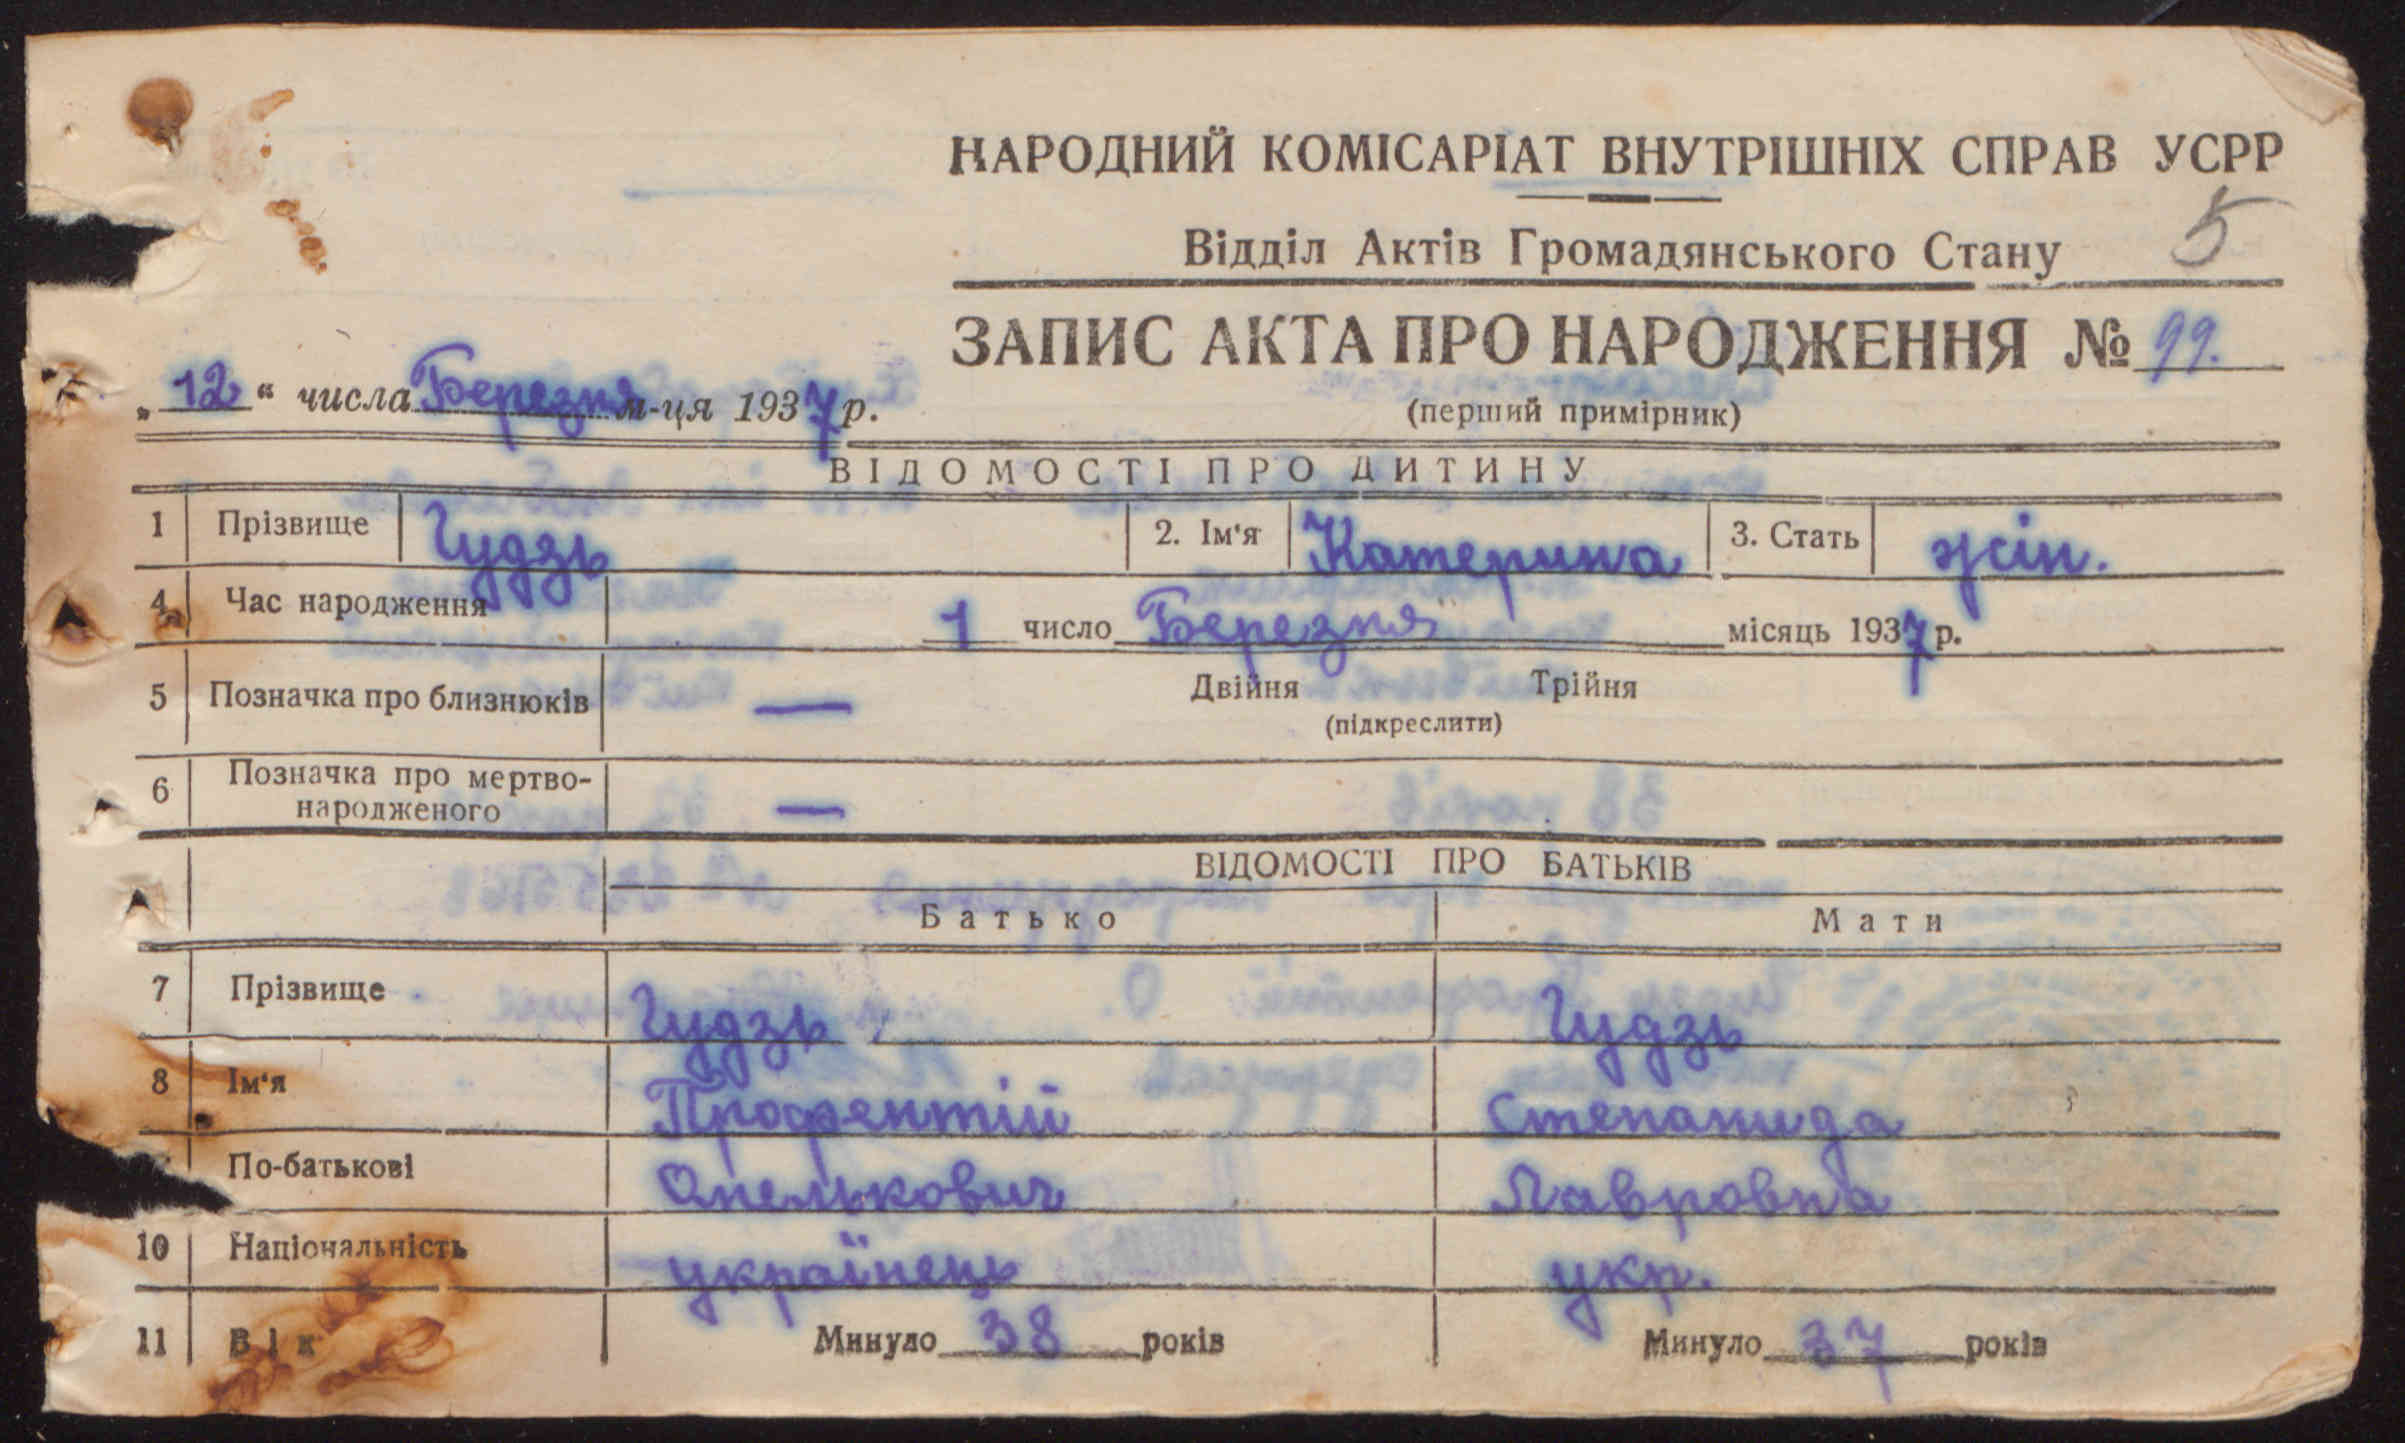 НАРОДНИЙ КОМІСАРІАТ ВНУТРІШНІХ СПРАВ УСРР
5
Відділ Актів Громадянського Стану
ЗАПИС АКТА ПРО НАРОДЖЕННЯ № 99.
„12“ числа Березня м-ця 1937 р.
(перший примірник)
ВІДОМОСТІ ПРО ДИТИНУ
1 Прізвище Гудзь 2. Ім'я Катерина 3. Стать жін.
4 Час народження 1 число Березня місяць 1937 р.
5 Позначка про близнюків — Двійня Трійня
(підкреслити)
6 Позначка про мертво-
народженого —
ВІДОМОСТІ ПРО БАТЬКІВ
Батько Мати
7 Прізвище Гудзь Гудзь
8 Ім'я Профентій Степанида
По-батькові Омелькович Лавровна
10 Національність українець укр.
11 Вік Минуло 38 років Минуло 37 років